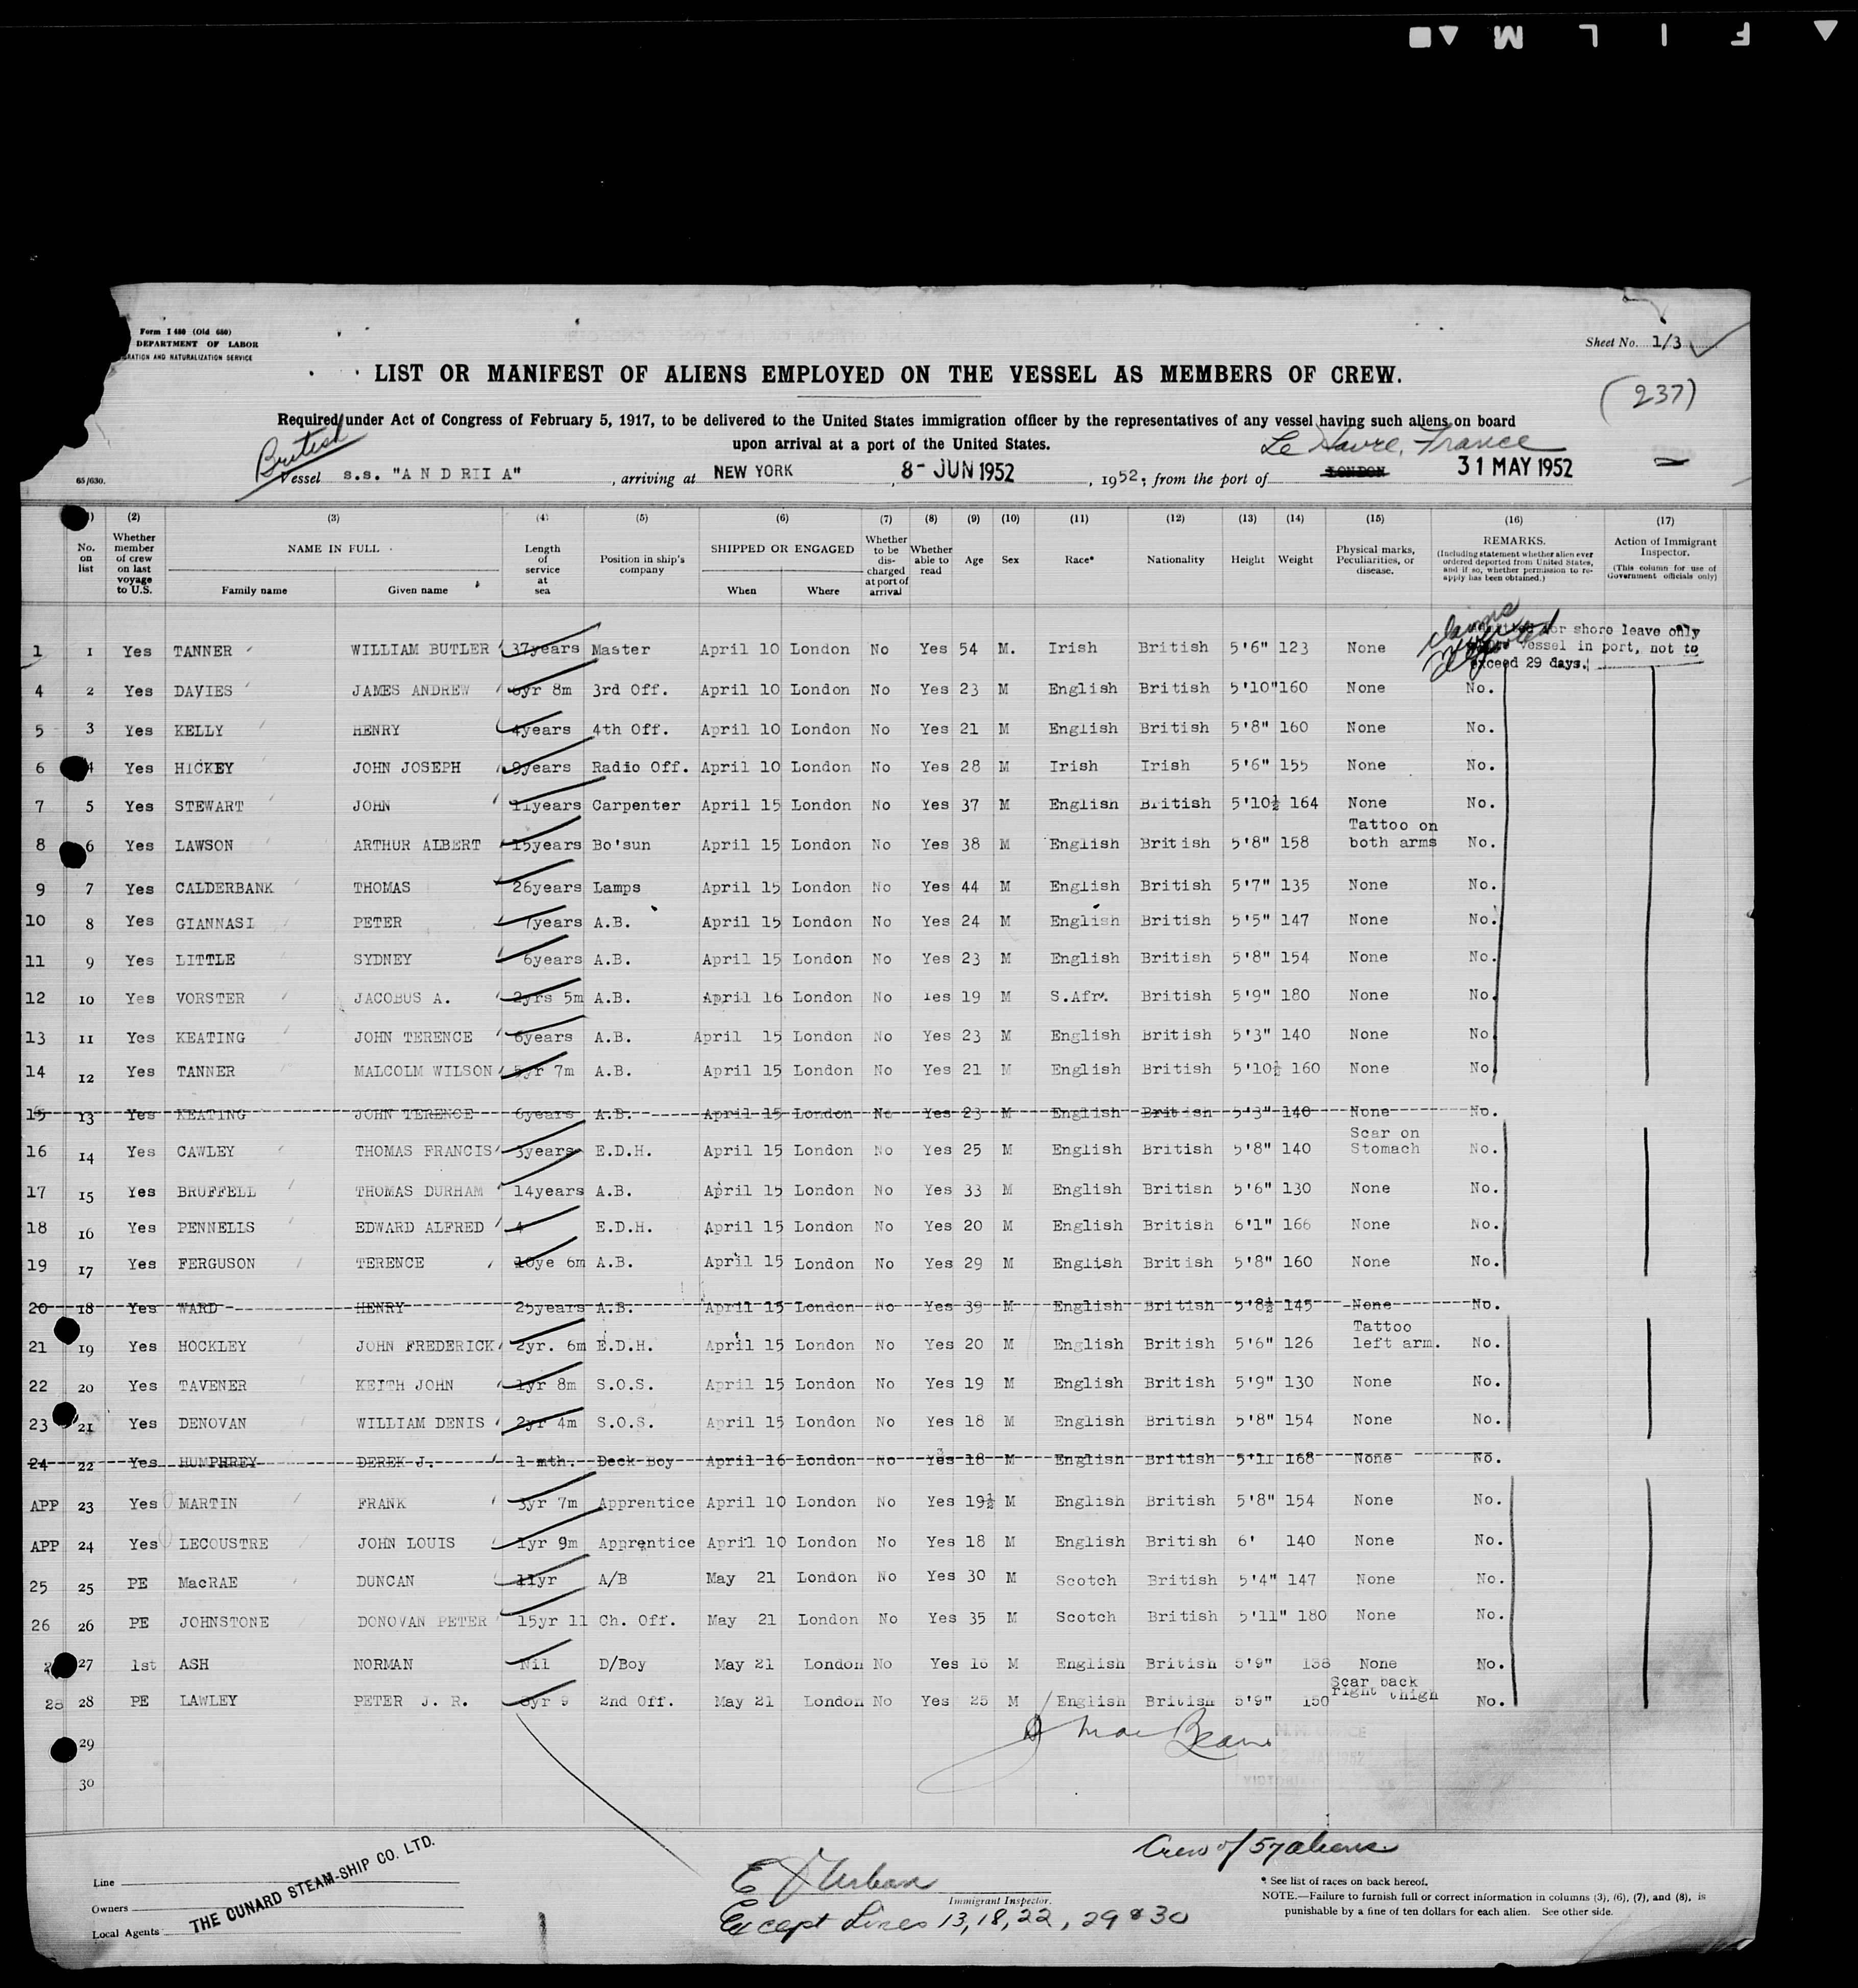 F I L M
Form I 480 (Old 680)
DEPARTMENT OF LABOR
IMMIGRATION AND NATURALIZATION SERVICE
Sheet No. 1/3
LIST OR MANIFEST OF ALIENS EMPLOYED ON THE VESSEL AS MEMBERS OF CREW.
(237)
Required under Act of Congress of February 5, 1917, to be delivered to the United States immigration officer by the representatives of any vessel having such aliens on board
upon arrival at a port of the United States.
British Le Havre, France
65/630. Vessel s.s. "A N D RII A", arriving at NEW YORK, 8- JUN 1952, 1952; from the port of LONDON 31 MAY 1952
(2) (3) (4) (5) (6) (7) (8) (9) (10) (11) (12) (13) (14) (15) (16) (17)
No. on list Whether member of crew on last voyage to U.S. NAME IN FULL Family name Given name Length of service at sea Position in ship's company SHIPPED OR ENGAGED When Where Whether to be discharged at port of arrival Whether able to read Age Sex Race* Nationality Height Weight Physical marks, Peculiarities, or disease. REMARKS. (Including statement whether alien ever ordered deported from United States, and if so, whether permission to re-apply has been obtained.) Action of Immigrant Inspector. (This column for use of Government officials only)
for shore leave only
vessel in port, not to
exceed 29 days.
1 1 Yes TANNER WILLIAM BUTLER 37years Master April 10 London No Yes 54 M. Irish British 5'6" 123 None
4 2 Yes DAVIES JAMES ANDREW yr 8m 3rd Off. April 10 London No Yes 23 M English British 5'10" 160 None No.
5 3 Yes KELLY HENRY 4years 4th Off. April 10 London No Yes 21 M English British 5'8" 160 None No.
6 4 Yes HICKEY JOHN JOSEPH 9years Radio Off. April 10 London No Yes 28 M Irish Irish 5'6" 155 None No.
7 5 Yes STEWART JOHN 11years Carpenter April 15 London No Yes 37 M English British 5'10½ 164 None No.
8 6 Yes LAWSON ARTHUR ALBERT 15years Bo'sun April 15 London No Yes 38 M English British 5'8" 158 Tattoo on both arms No.
9 7 Yes CALDERBANK THOMAS 26years Lamps April 15 London No Yes 44 M English British 5'7" 135 None No.
10 8 Yes GIANNASI PETER 7years A.B. April 15 London No Yes 24 M English British 5'5" 147 None No.
11 9 Yes LITTLE SYDNEY 6years A.B. April 15 London No Yes 23 M English British 5'8" 154 None No.
12 10 Yes VORSTER JACOBUS A. 2yrs 5m A.B. April 16 London No Yes 19 M S.Afr. British 5'9" 180 None No.
13 11 Yes KEATING JOHN TERENCE 6years A.B. April 15 London No Yes 23 M English British 5'3" 140 None No
14 12 Yes TANNER MALCOLM WILSON yr 7m A.B. April 15 London No Yes 21 M English British 5'10½ 160 None No
15 13 Yes KEATING JOHN TERENCE 6years A.B. April 15 London No Yes 23 M English British 5'3" 140 None No.
16 14 Yes CAWLEY THOMAS FRANCIS 3years E.D.H. April 15 London No Yes 25 M English British 5'8" 140 Scar on Stomach No.
17 15 Yes BRUFFELL THOMAS DURHAM 14years A.B. April 15 London No Yes 33 M English British 5'6" 130 None No.
18 16 Yes PENNELLS EDWARD ALFRED 4 E.D.H. April 15 London No Yes 20 M English British 6'1" 166 None No.
19 17 Yes FERGUSON TERENCE 10ye 6m A.B. April 15 London No Yes 29 M English British 5'8" 160 None No.
20 18 Yes WARD HENRY 25years A.B. April 15 London No Yes 39 M English British 5'8½ 145 None No.
21 19 Yes HOCKLEY JOHN FREDERICK 2yr. 6m E.D.H. April 15 London No Yes 20 M English British 5'6" 126 Tattoo left arm. No.
22 20 Yes TAVENER KEITH JOHN 1yr 8m S.O.S. April 15 London No Yes 19 M English British 5'9" 130 None No.
23 21 Yes DENOVAN WILLIAM DENIS 2yr 4m S.O.S. April 15 London No Yes 18 M English British 5'8" 154 None No.
24 22 Yes HUMPHREY DEREK J. 1 mth. Deck Boy April 16 London No Yes 18 M English British 5'11 168 None No.
APP 23 Yes MARTIN FRANK 3yr 7m Apprentice April 10 London No Yes 19½ M English British 5'8" 154 None No.
APP 24 Yes LECOUSTRE JOHN LOUIS 1yr 9m Apprentice April 10 London No Yes 18 M English British 6' 140 None No.
25 25 PE MacRAE DUNCAN 11yr A/B May 21 London No Yes 30 M Scotch British 5'4" 147 None No.
26 26 PE JOHNSTONE DONOVAN PETER 15yr 11 Ch. Off. May 21 London No Yes 35 M Scotch British 5'11" 180 None No.
27 1st ASH NORMAN Nil D/Boy May 21 London No Yes 16 M English British 5'9" None No.
28 28 PE LAWLEY PETER J. R. yr 9 2nd Off. May 21 London No Yes 25 M English British 5'9" 150 Scar back right thigh No.
29 J MacBean
30
Crew of 57 aliens
Line
Owners
Local Agents
THE CUNARD STEAM-SHIP CO. LTD.
E J Urban
Immigrant Inspector.
Except Lines 13, 18, 22, 29 & 30
* See list of races on back hereof.
NOTE.—Failure to furnish full or correct information in columns (3), (6), (7), and (8), is
punishable by a fine of ten dollars for each alien. See other side.